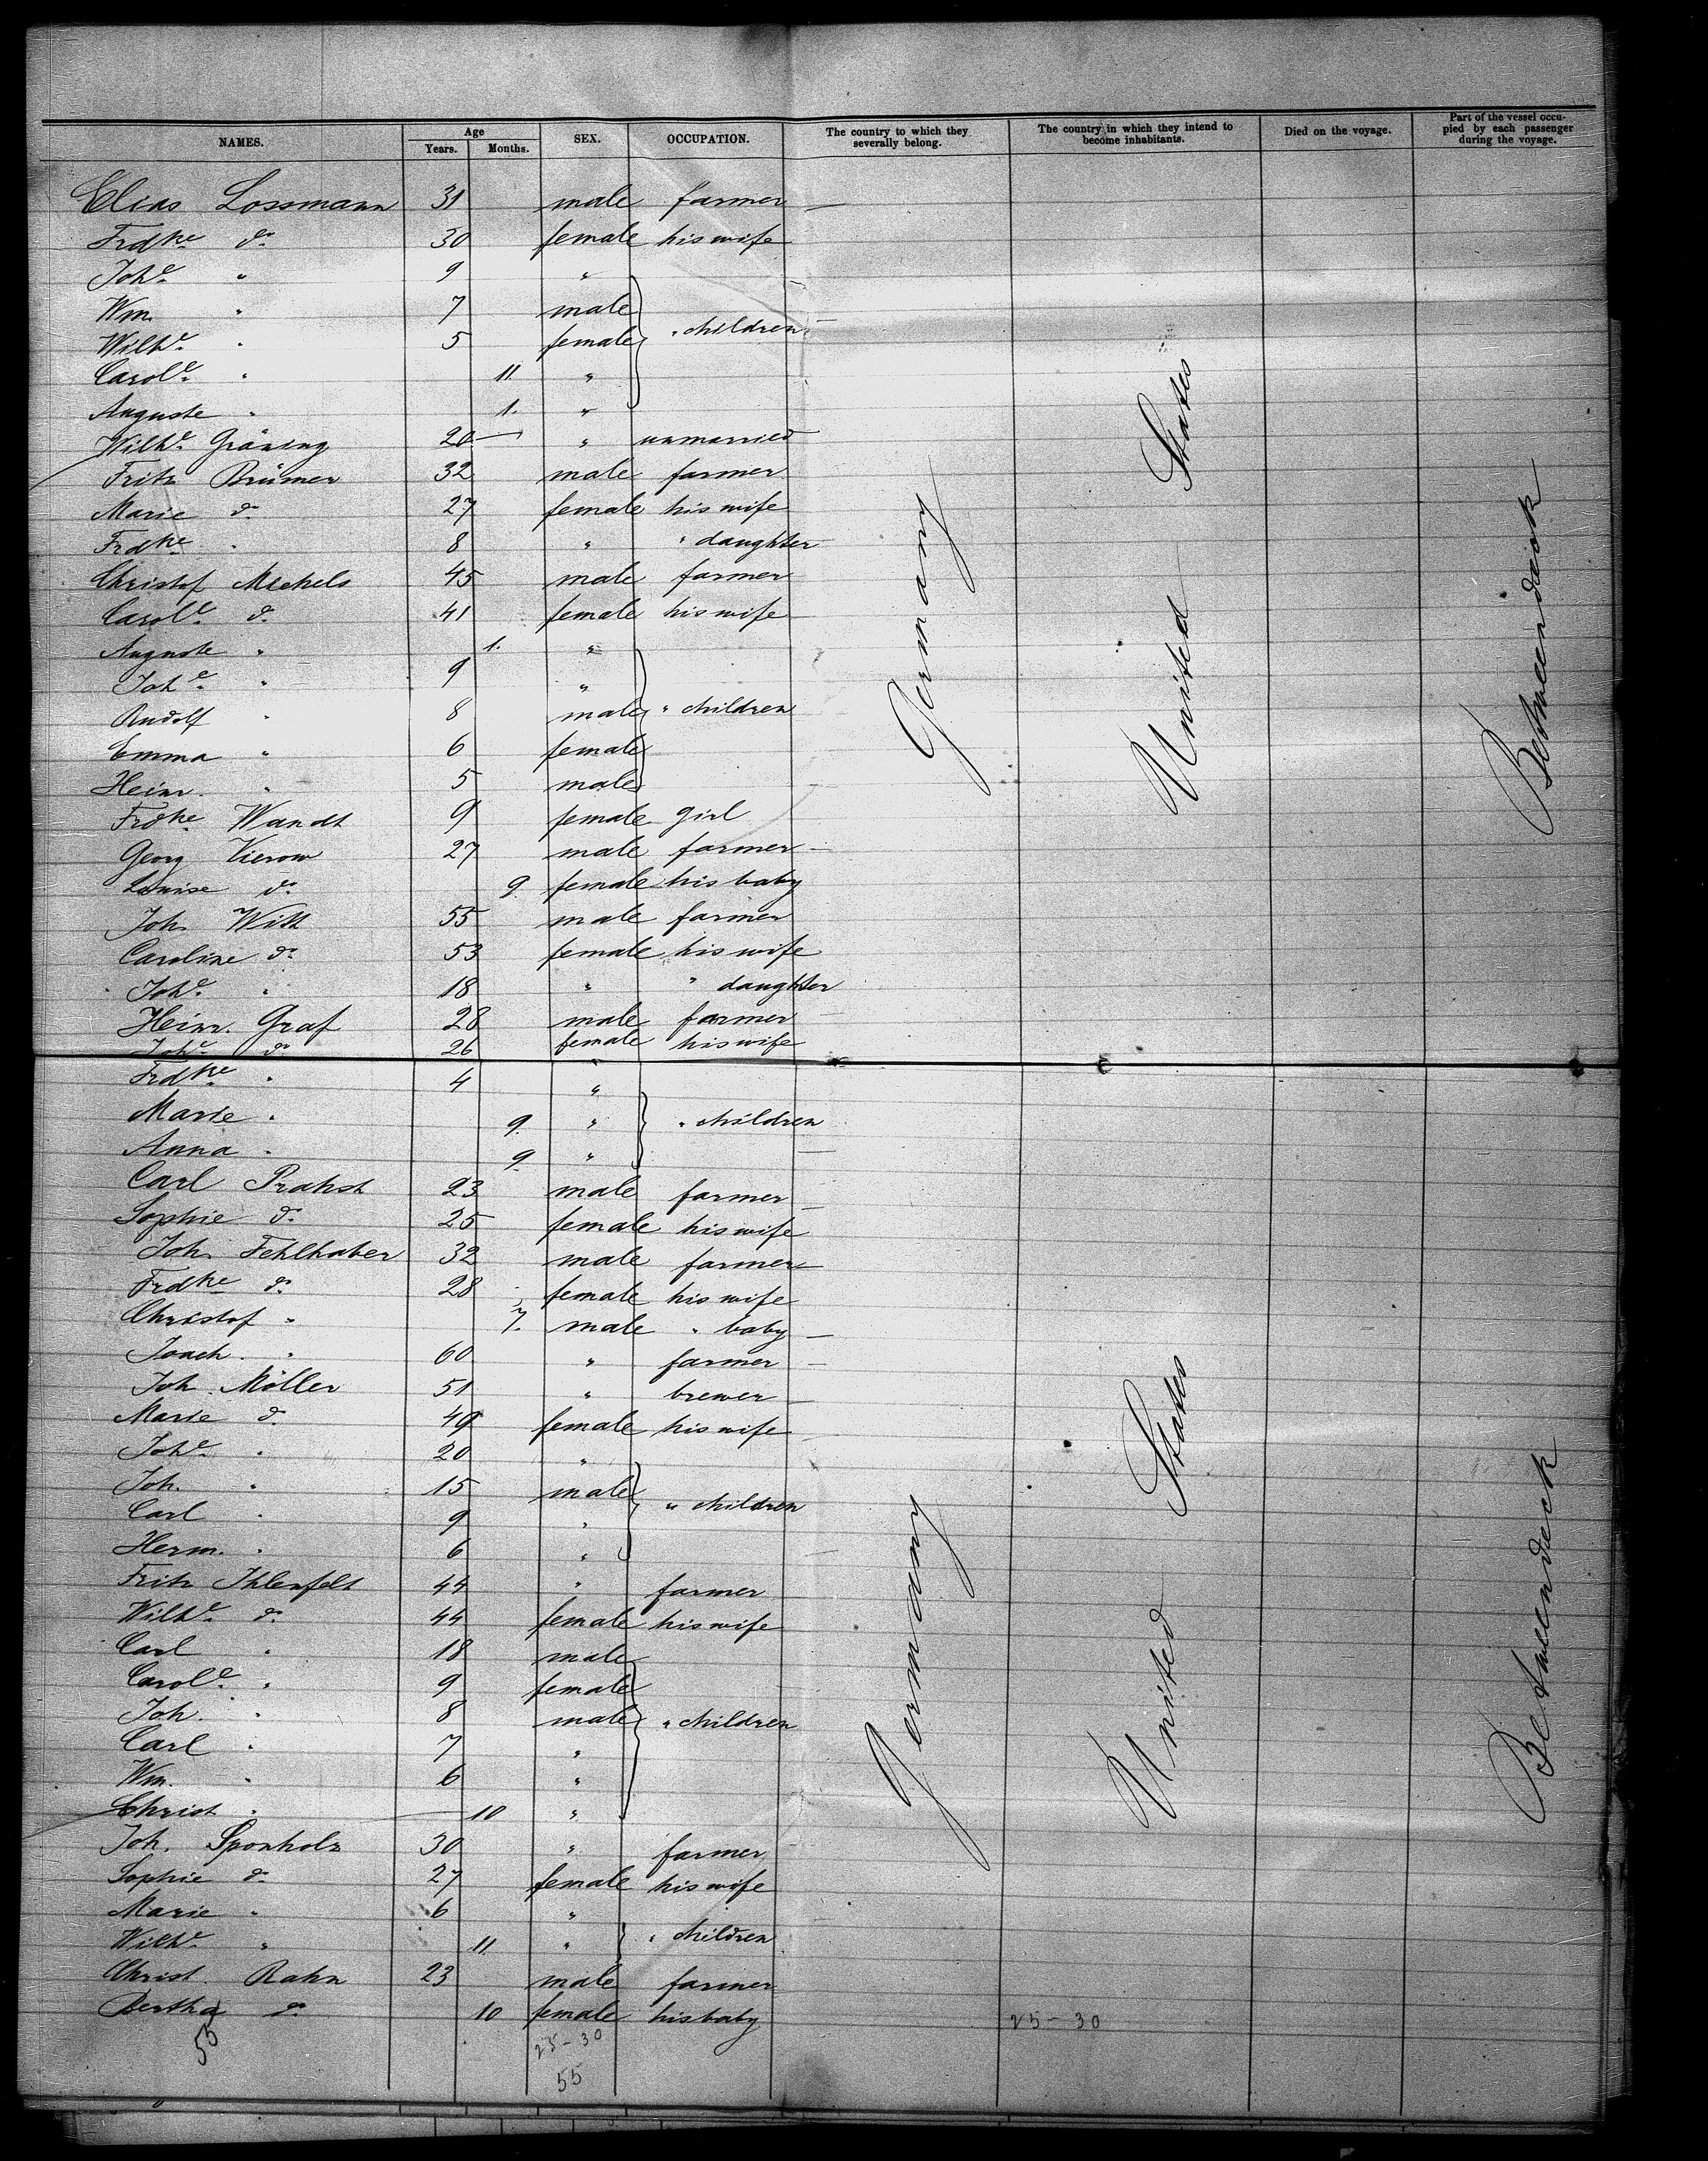 NAMES. Age Years. Months. SEX. OCCUPATION. The country to which they severally belong. The country in which they intend to become inhabitants. Died on the voyage. Part of the vessel occupied by each passenger during the voyage.
Elias Lossmann 31 male farmer —
Frdke do 30 female his wife
Johe " 9 "
Wm. " 7 male
Wilhe " 5 female " children
Carole " 11. "
Auguste " 1. "
Wilhe Gröning 20 — " unmarried
Fritz Brümer 32 male farmer
Marie do 27 female his wife
Frdke " 8 " " daughter
Christof Michels 45 male farmer
Carole do 41 female his wife
Auguste " 1. "
Johe " 9 "
Rudolf " 8 male " children
Emma " 6 female
Heinr. " 5 male
Frdke Wandt 9 female girl
Georg Vierow 27 male farmer
Louise do 9. female his baby
Joh. Witt 55 male farmer
Caroline do 53 female his wife
Johe " 18 " " daughter
Heinr. Graf 28 male farmer
Johe do 26 female his wife
Frdke " 4 "
Marie " 9. " " children
Anna " 9. "
Carl Prahst 23 male farmer
Sophie do 25 female his wife
Joh. Fehlhaber 32 male farmer
Frdke do 28 female his wife
Christof " 7. male " baby
Joach. " 60 " farmer
Joh. Möller 51 " brewer
Marie do 49 female his wife
Johe " 20 "
Joh. " 15 male " children
Carl " 9 "
Herm. " 6 "
Fritz Ihlenfeldt 44 " farmer
Wilhe do 44 female his wife
Carl " 18 male
Carole " 9 female
Joh. " 8 male " children
Carl " 7 "
Wm. " 6 "
Christ " 10 "
Joh. Sponholz 30 " farmer
Sophie do 27 female his wife
Marie " 6 "
Wilhe " 11. " " children
Christ. Rahn 23 male farmer
Bertha do 10 female his baby
55 25-30 25-30
55
Germany
United States
Betweendeck
Germany
United States
Betweendeck